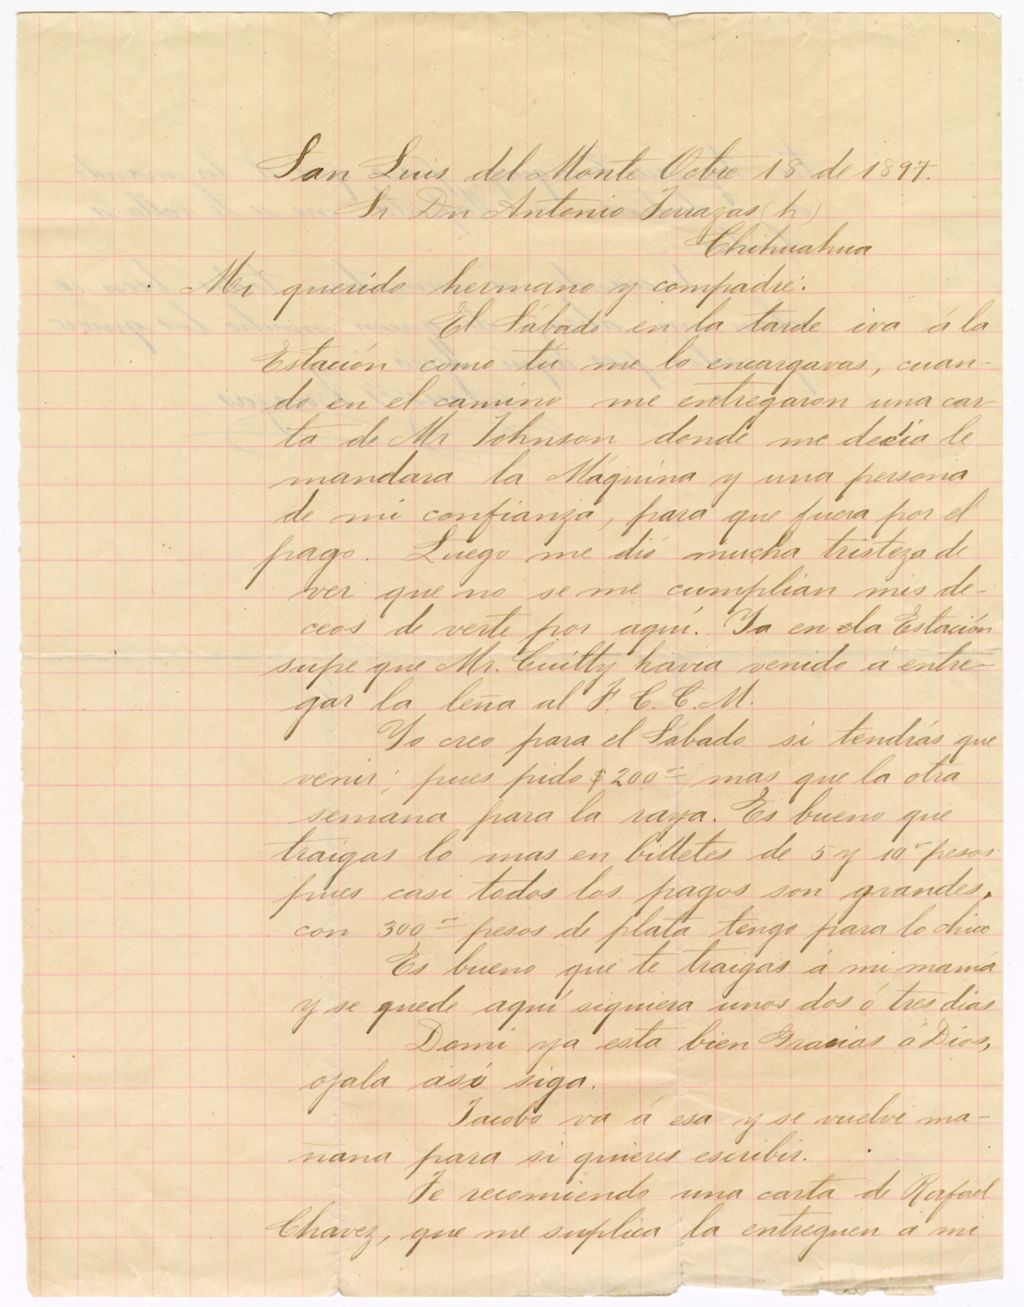 San Luis del Monte Octre 18 de 1897.
Sr Dn Antonio Terrazas (h)
Chihuahua
Mi querido hermano y compadre:
El Sábado en la tarde iva á la
Estación como tú me lo encargavas, cuan-
do en el camino me entregaron una car-
ta de Mr Johnson donde me decia le
mandara la Máquina y una persona
de mi confianza, para que fuera por el
pago. Luego me dió mucha tristeza de
ver que no se me cumplian mis de-
ceos de verte por aquí. Ya en la Estación
supe que Mr. Guilty havia venido á entre-
gar la leña al F. C. C. M.
Yo creo para el Sábado si tendrás que
venir, pues pido $200= mas que la otra
semana para la raya. Es bueno que
traigas lo mas en billetes de 5 y 10 pesos
pues casi todos los pagos son grandes,
con 300= pesos de plata tengo para lo chico
Es bueno que te traigas á mi mamá
y se quede aquí siquiera unos dos ó tres dias
Domi ya esta bien Gracias á Dios,
ojala asi siga.
Jacobo va á esa y se vuelve ma-
ñana para si quieres escribir.
Te recomiendo una carta de Rafael
Chavez, que me suplica la entreguen á mi